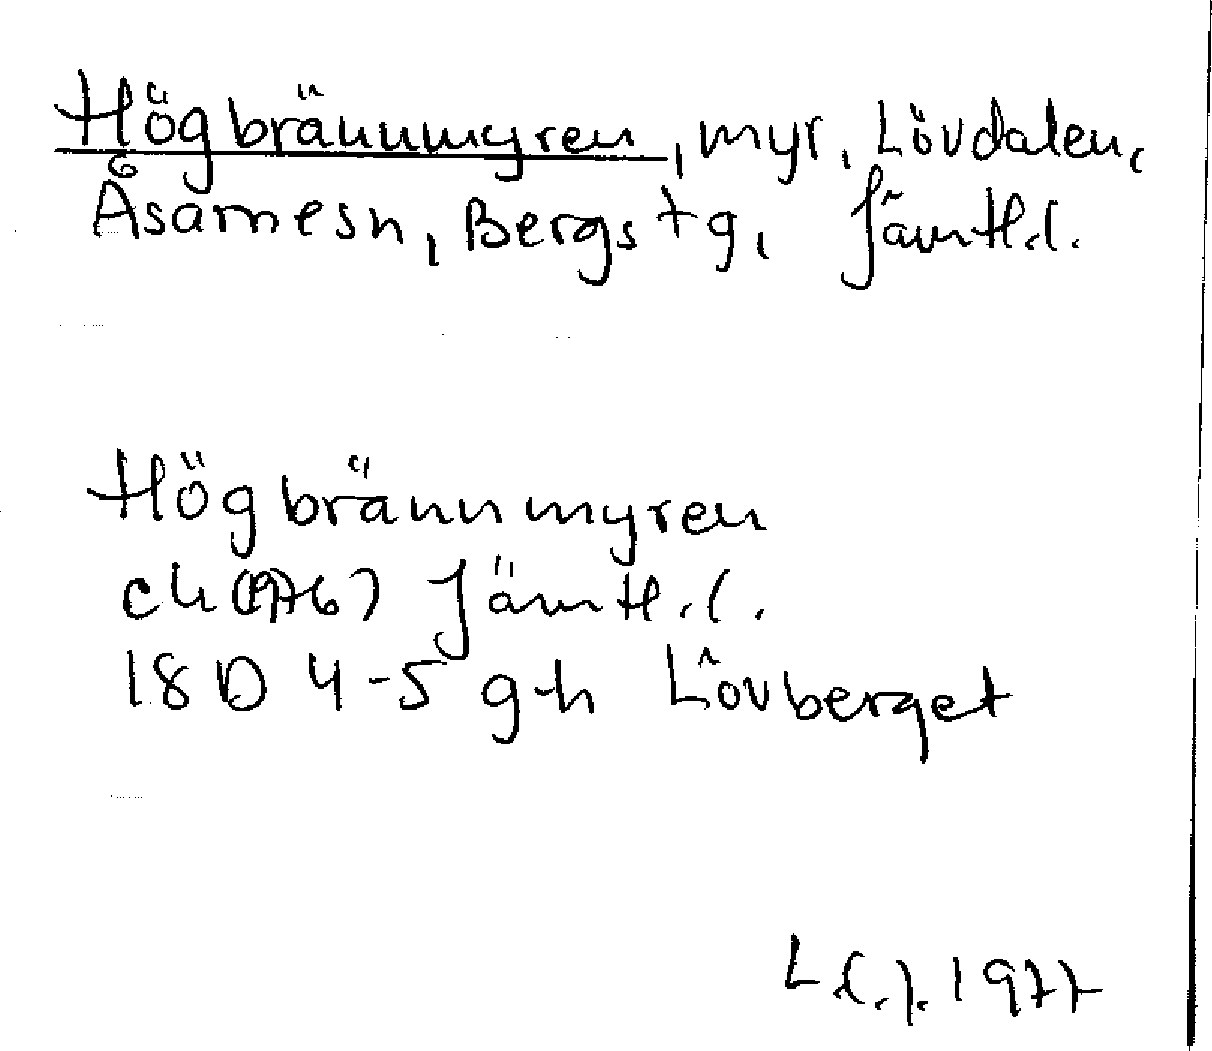 Högbrännmyren, myr, Lövdalen,
Åsarnesn, Bergs tg, Jämtl.l.
Högbrännmyren
ek (1976) Jämtl.l.
18D 4-5 g-h Lövberget
1977